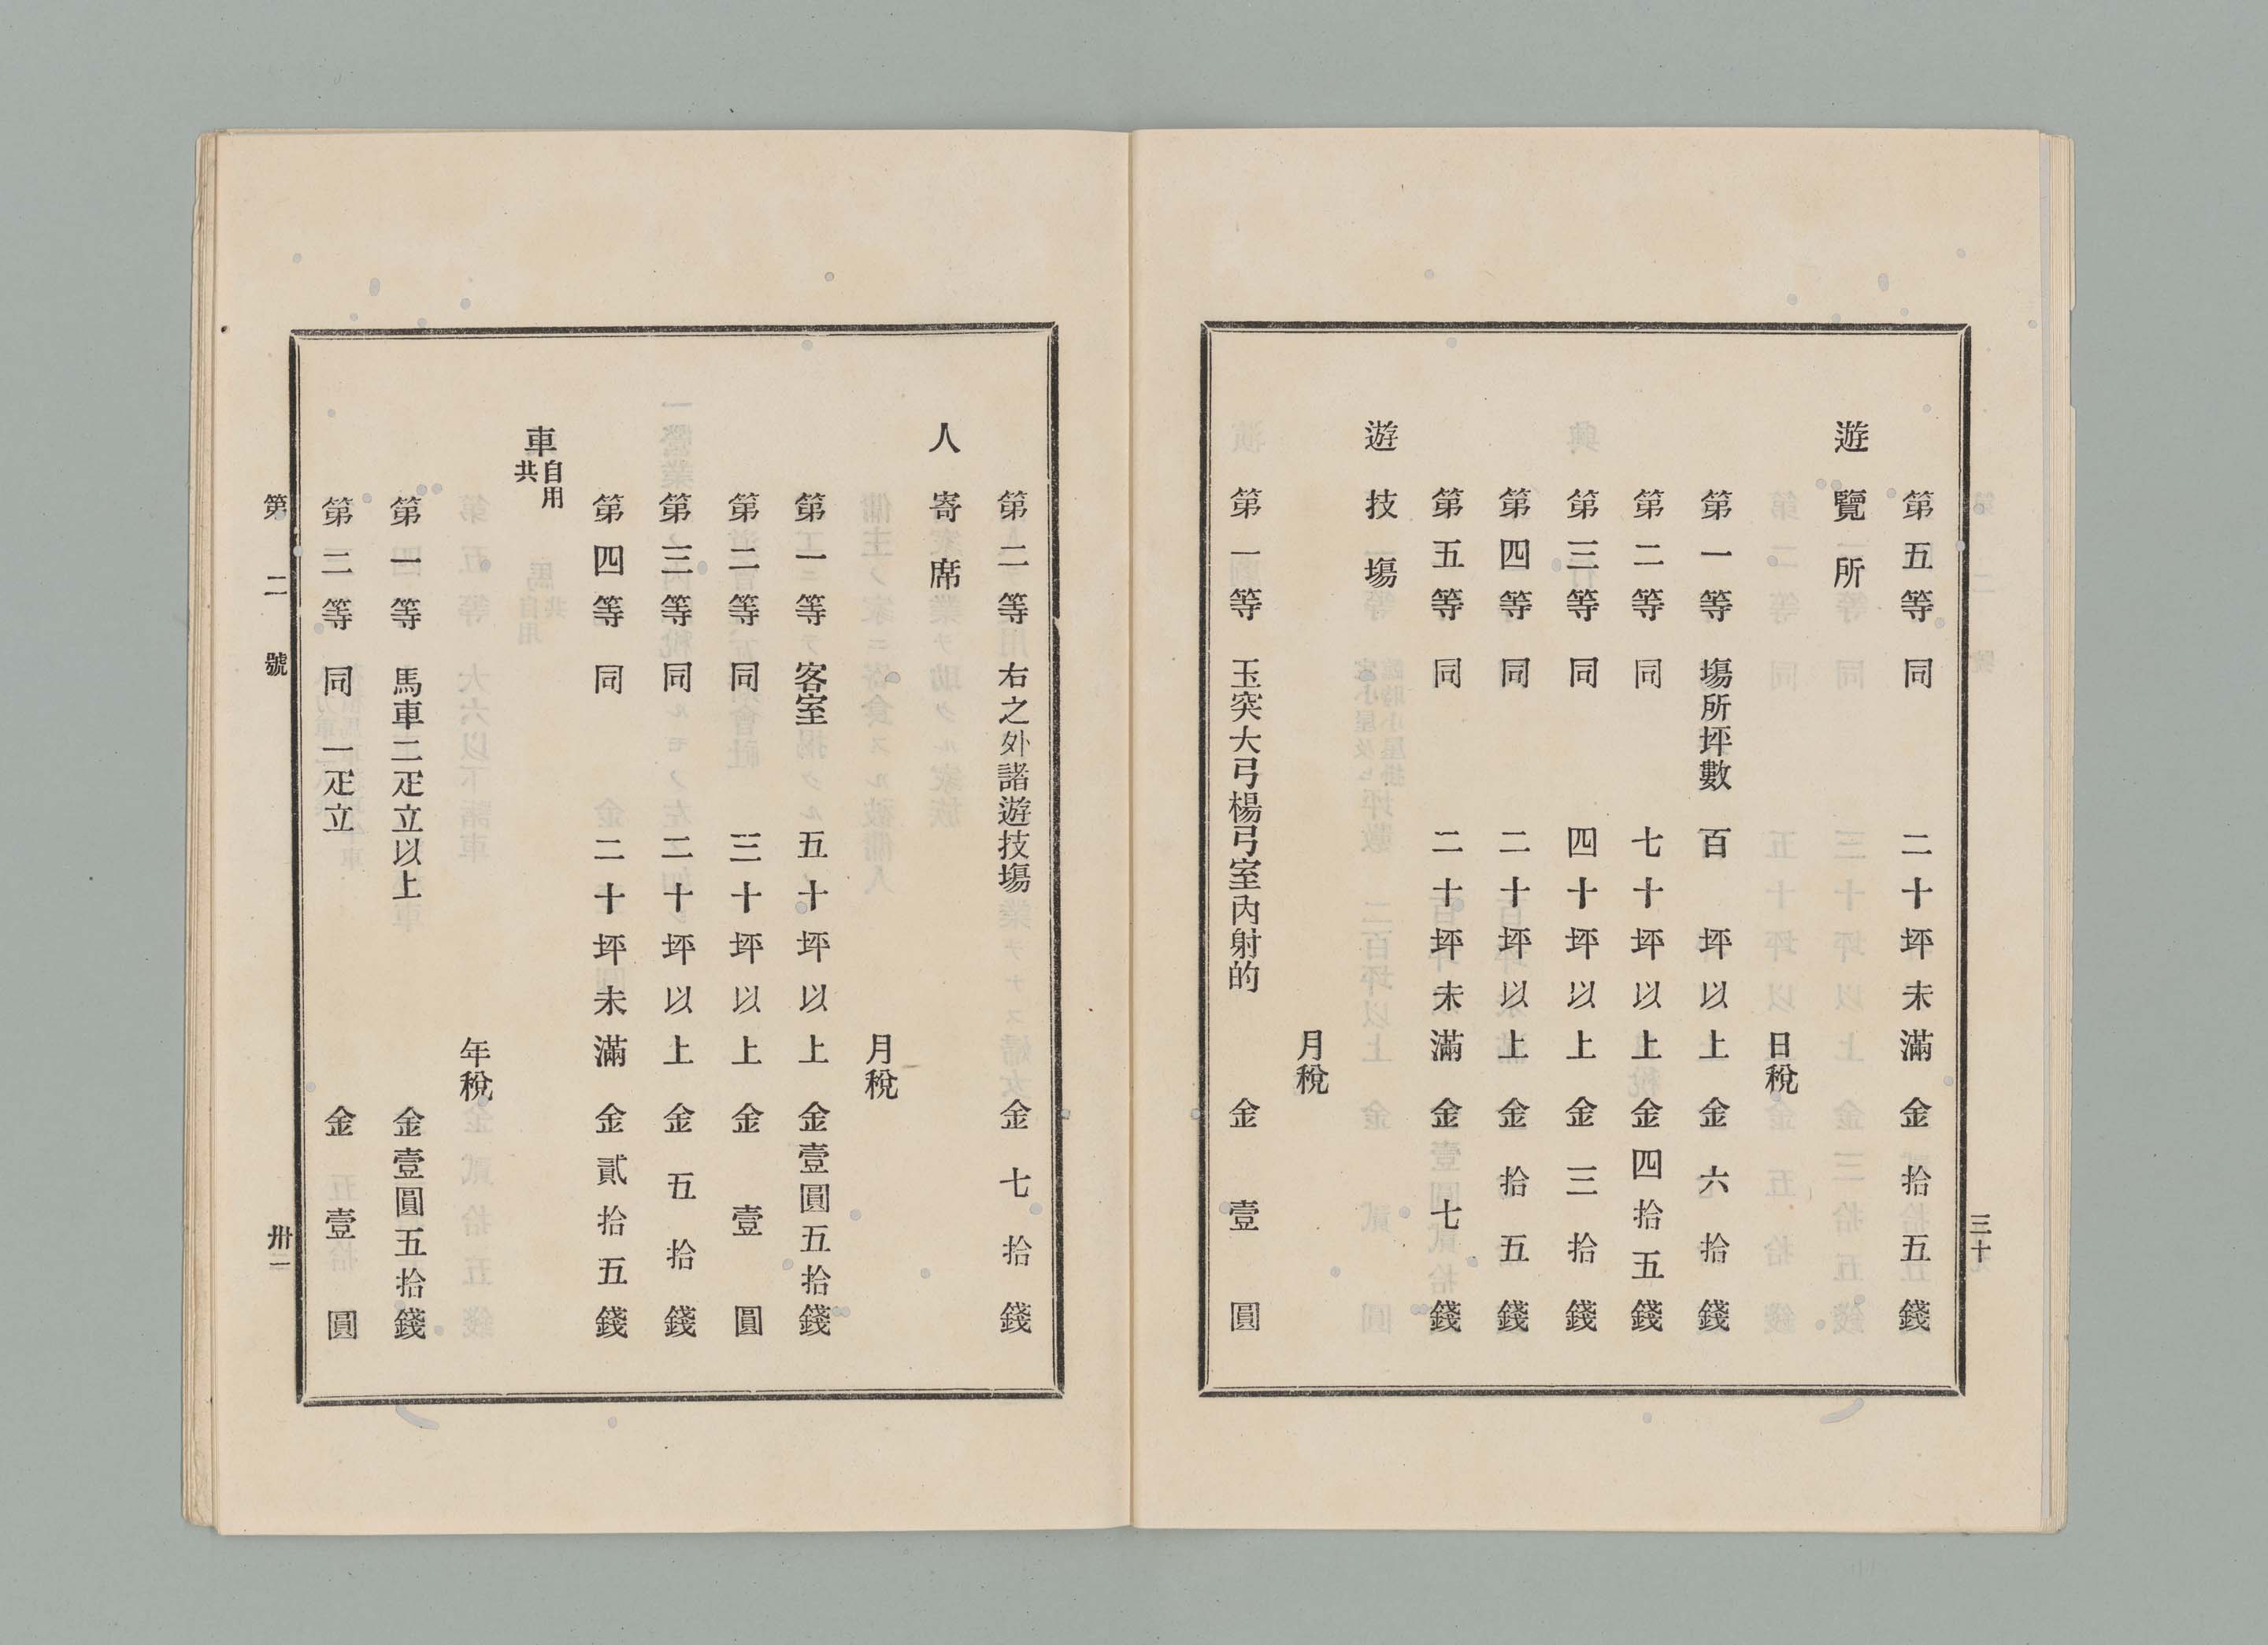 三十
第五等 同 二十坪未滿 金拾五錢
遊覽所
日稅
第一等 塲所坪數 百坪以上 金六拾錢
第二等 同 七十坪以上 金四拾五錢
第三等 同 四十坪以上 金三拾錢
第四等 同 二十坪以上 金拾五錢
第五等 同 二十坪未滿 金七錢
遊技塲
月稅
第一等 玉突大弓楊弓室內射的 金壹圓
第二等 右之外諸遊技塲 金七拾錢
人寄席
月稅
第一等 客室 五十坪以上 金壹圓五拾錢
第二等 同 三十坪以上 金壹圓
第三等 同 二十坪以上 金五拾錢
第四等 同 二十坪未滿 金貳拾五錢
車自用共
年稅
第一等 馬車二疋立以上 金壹圓五拾錢
第二等 同一疋立 金壹圓
第二號 卅一